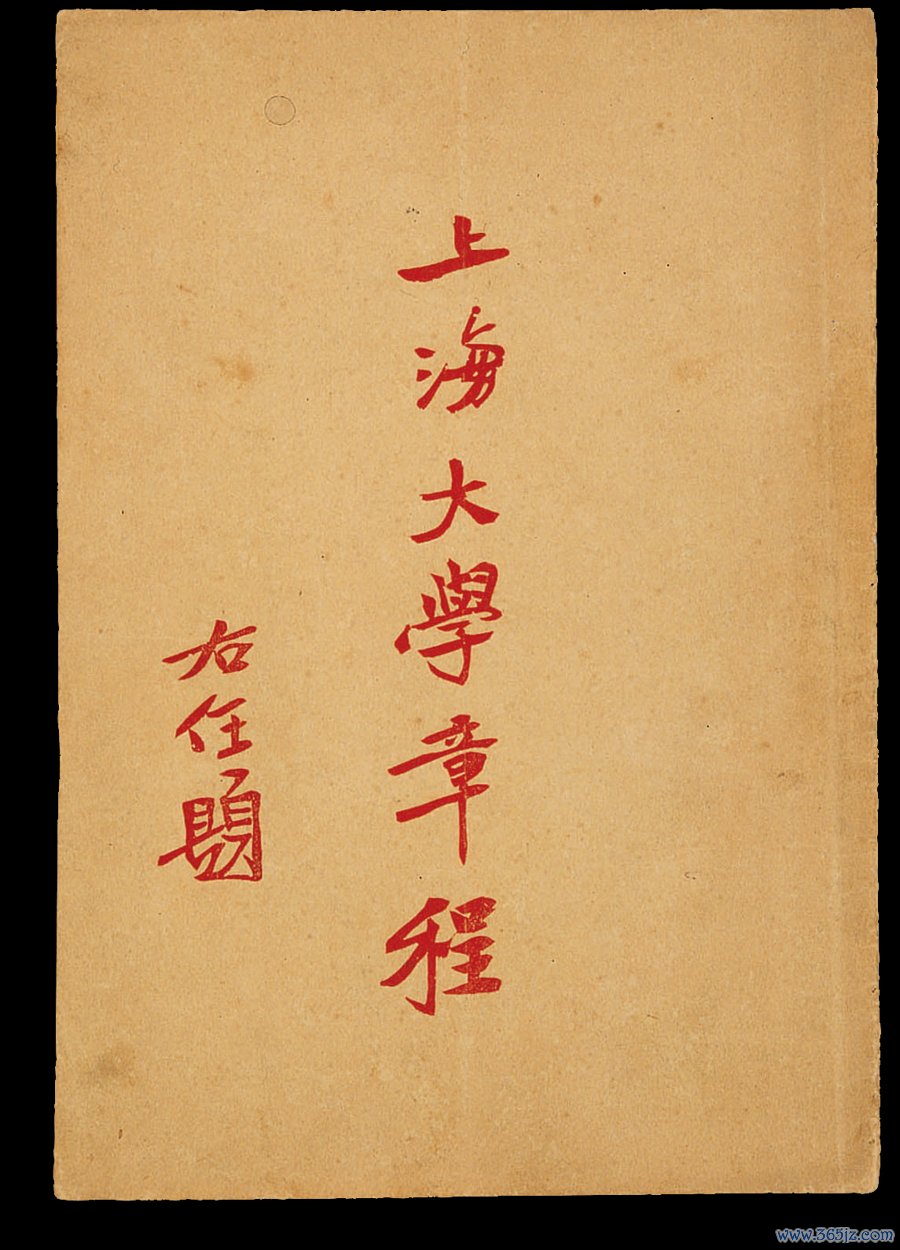 上海大學章程
右任題
www.365jz.com